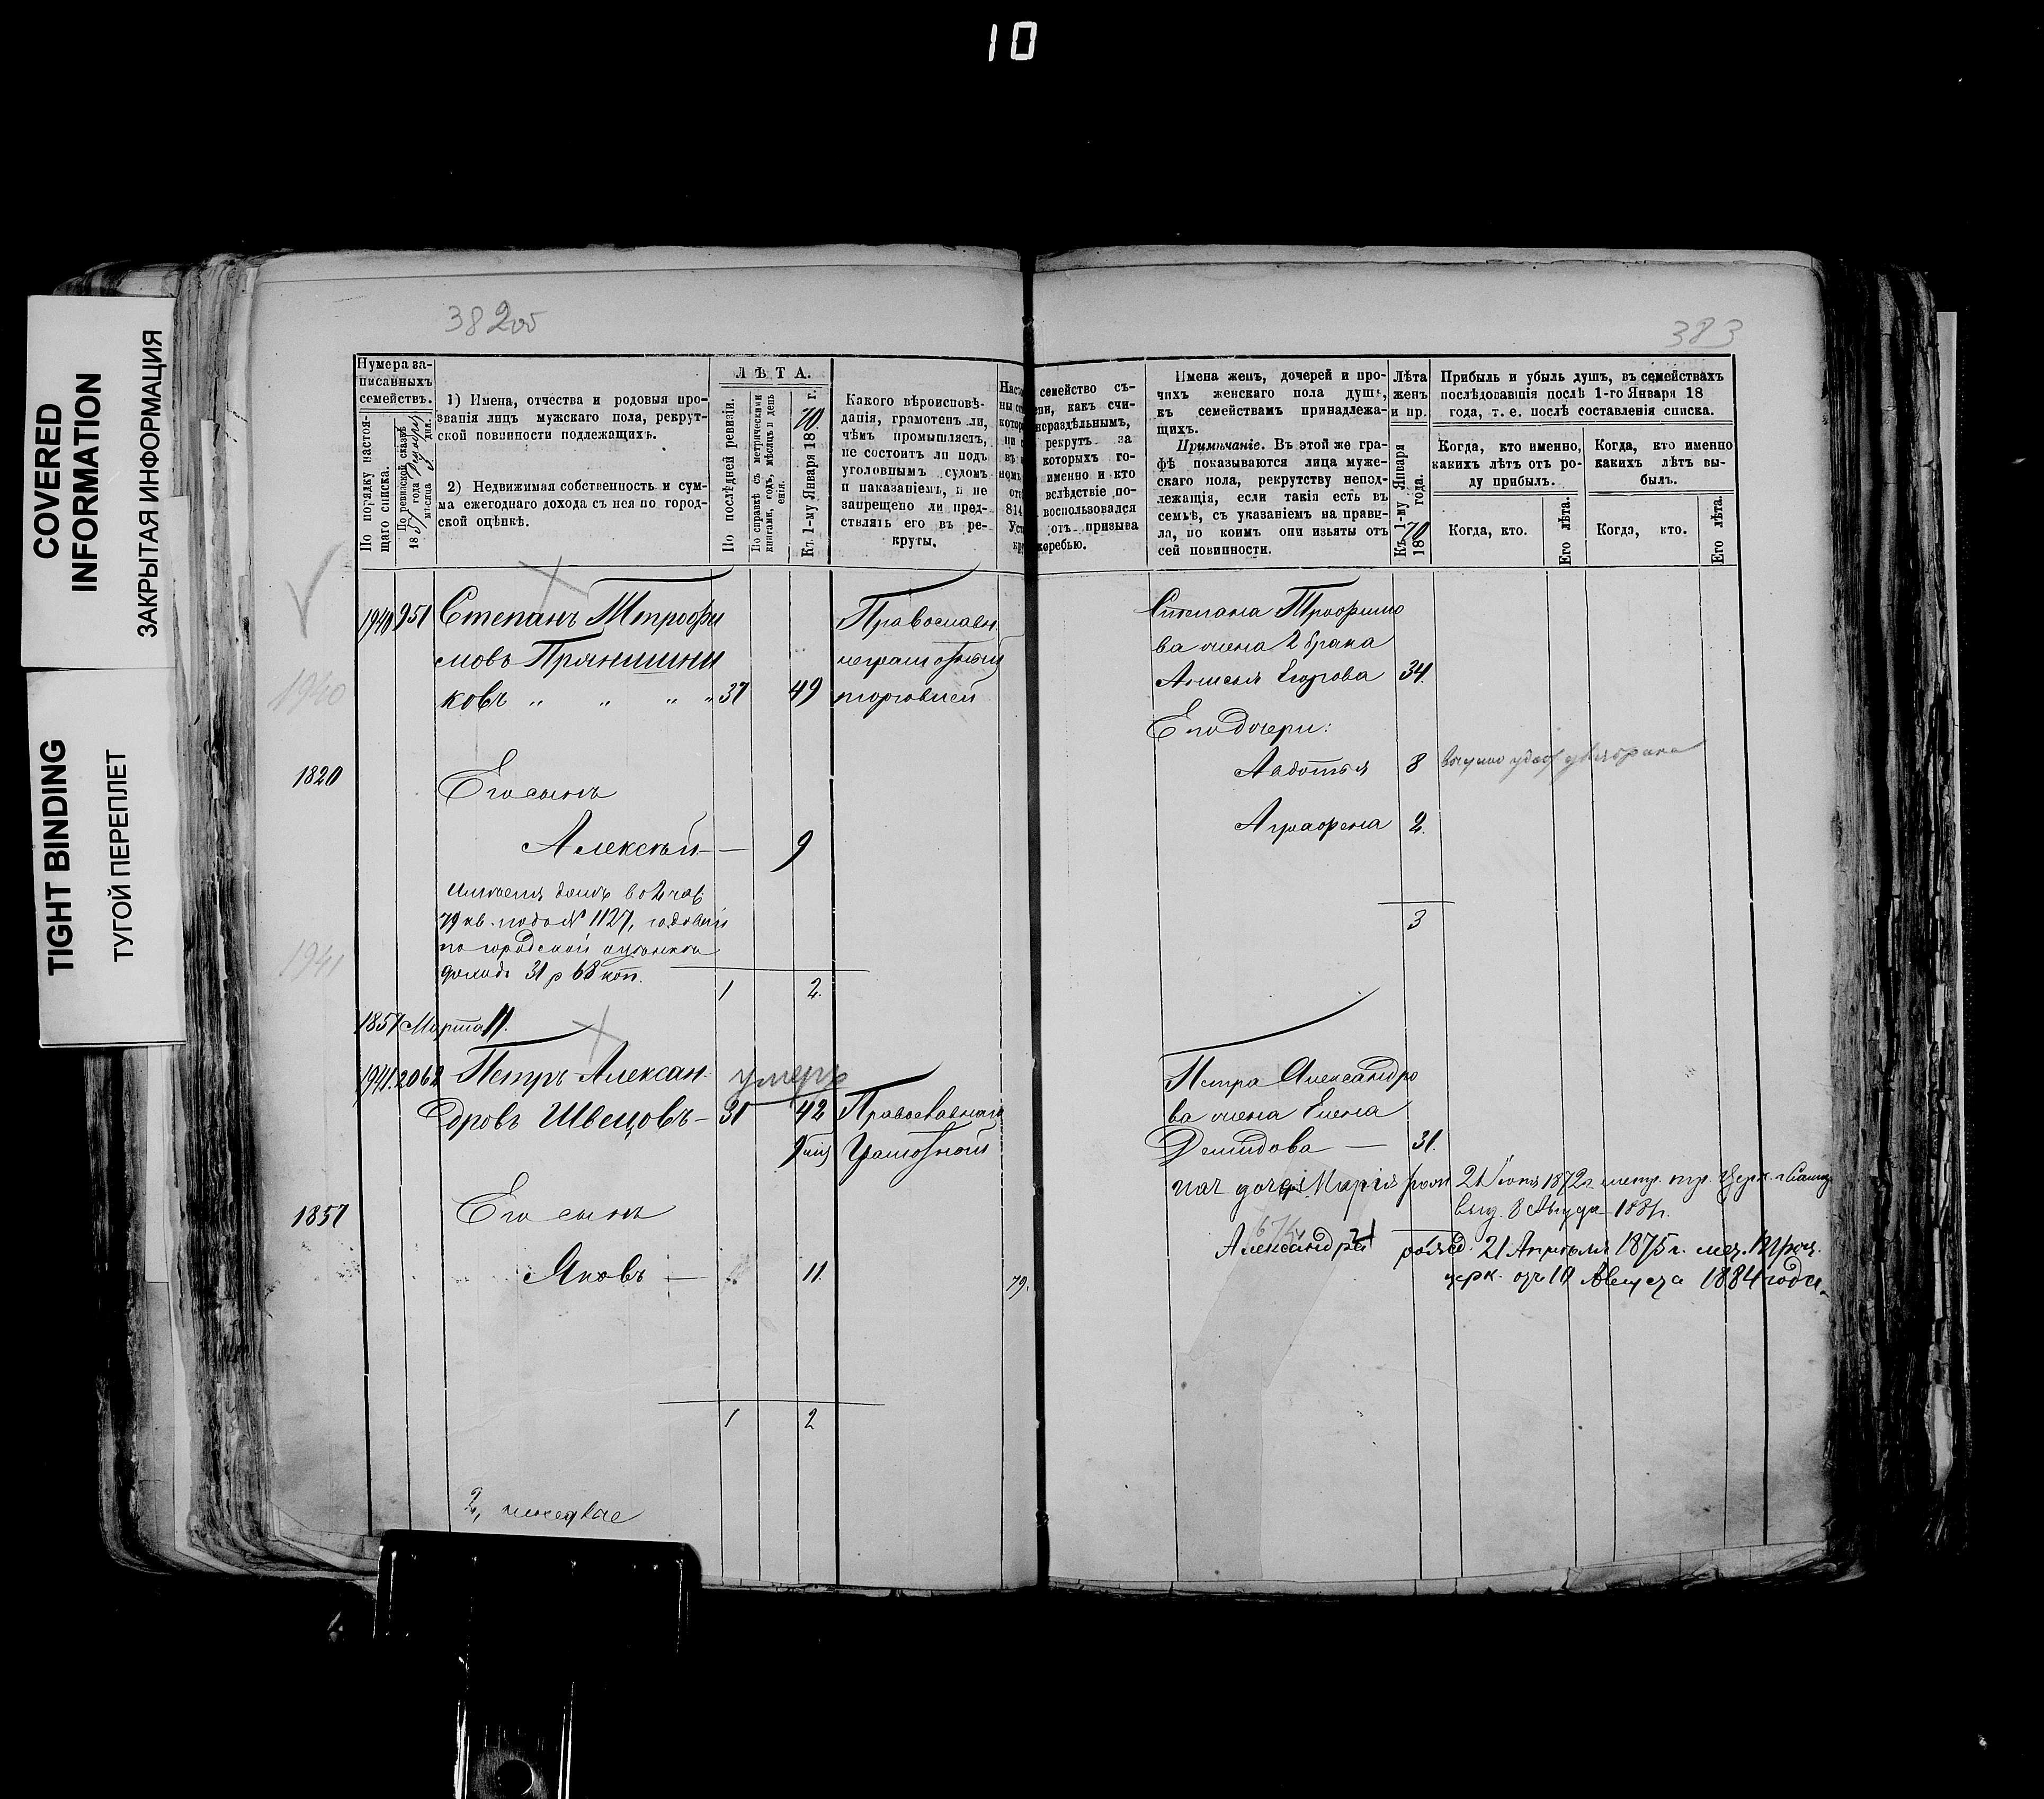 10
COVERED
INFORMATION
ЗАКРЫТАЯ ИНФОРМАЦИЯ
TIGHT BINDING
ТУГОЙ ПЕРЕПЛЕТ
382об
Нумера за-
писанныхъ
семействъ.
По порядку настоя-
щаго списка.
По ревизской сказкѣ
185 года
мѣсяца дня.
1) Имена, отчества и родовыя про-
званія лицъ мужскаго пола, рекрут-
ской повинности подлежащихъ.
2) Недвижимая собственность и сум-
ма ежегоднаго дохода съ нея по город-
ской оцѣнкѣ.
ЛѢТА.
По послѣдней ревизіи.
По справкѣ съ метрическими
книгами, годъ, мѣсяцъ и день
Къ 1-му Января 1870 г.
Какого вѣроисповѣ-
данія, грамотенъ ли,
чѣмъ промышляетъ,
не состоитъ ли подъ
уголовнымъ судомъ
и наказаніемъ, и не
запрещено ли пред-
ставлять его въ ре-
круты.
1940 951 Степанъ Митрофи
мовъ Прянишни
ковъ " " " " 37 49
Православн.
неграмотный
торговлей
1940
1820
Его сынъ
Алексѣй — 9
Имѣетъ домъ во 2 час
79 кв. подъ № 1127, годовый
по городской оцѣнкѣ
доходъ 31 р 68 коп.
1 2.
1941
1857 Марта 11.
1941. 2062 Петръ Алексан-
умеръ
дровъ Швецовъ — 31 42 Православнаго
Грамотной
1857
Его сынъ
Яковъ — 11.
79.
1 2
2,
383
семейство съ-
какъ счи-
нераздѣльнымъ,
рекрутъ за
которыхъ го-
именно и кто
вслѣдствіе по-
воспользовался
отъ призыва
жеребью.
Имена женъ, дочерей и про-
чихъ женскаго пола душъ,
къ семействамъ принадлежа-
щихъ.
Примѣчаніе. Въ этой же гра-
фѣ показываются лица муже-
скаго пола, рекрутству непод-
лежащія, если такія есть въ
семьѣ, съ указаніемъ на прави-
ла, по коимъ они изъяты отъ
сей повинности.
Лѣта
женъ
и пр.
Къ 1-му Января
1870 года.
Прибыль и убыль душъ, въ семействахъ
послѣдовавшія послѣ 1-го Января 18
года, т. е. послѣ составленія списка.
Когда, кто именно,
какихъ лѣтъ отъ ро-
ду прибылъ.
Когда, кто именно
какихъ лѣтъ вы-
былъ.
Когда, кто.
Его лѣта.
Когда, кто.
Его лѣта.
Степана Трофимо
ва жена 2 брака
Анисья Егорова 34.
Его дочери:
Авдотья 8
Аграфена 2.
3
Петра Александро
ва жена Елена
Демидова — 31.
дочь Марія рожд 21 1872 г. метр.
выд. 8
Александра рожд. 21 Апрѣля 1875 г.
церк. отъ 10 Августа 1884 года.